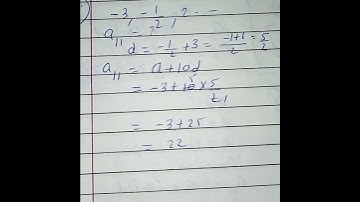 -3, -1/2, 2 - -
a₁₁ = ?
d = -1/2 + 3 = (-1+6)/2 = 5/2
a₁₁ = a + 10d
= -3 + 10 × 5/2
= -3 + 25
= 22